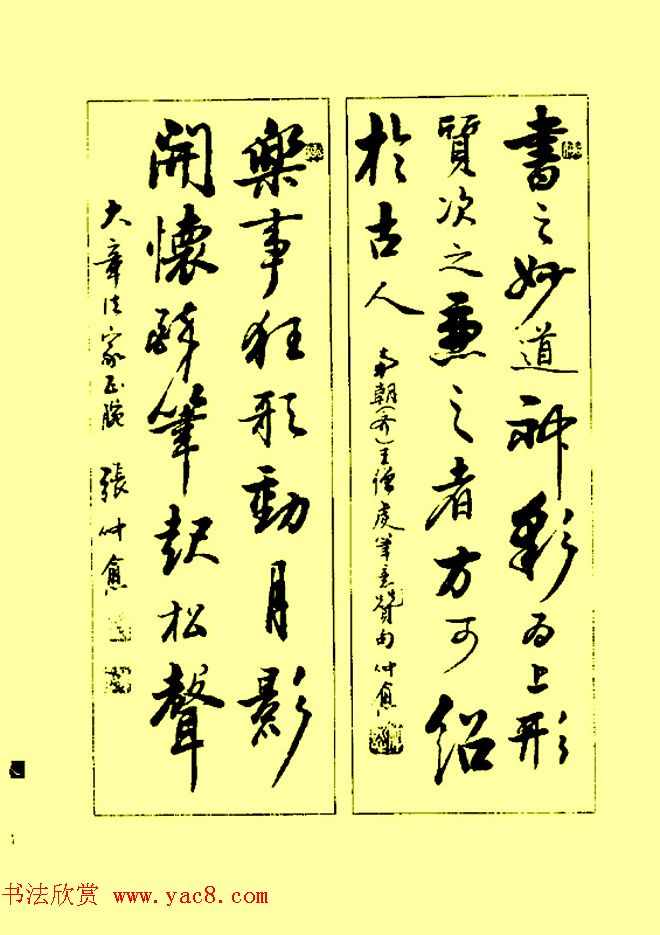 書之妙道神彩為上形
質次之兼之者方可紹
於古人
南朝(齐)王僧虔筆意贊句仲愈
樂事狂歌動月影
開懷醉筆起松聲
大章法家正腕
張仲愈
书法欣赏 www.yac8.com